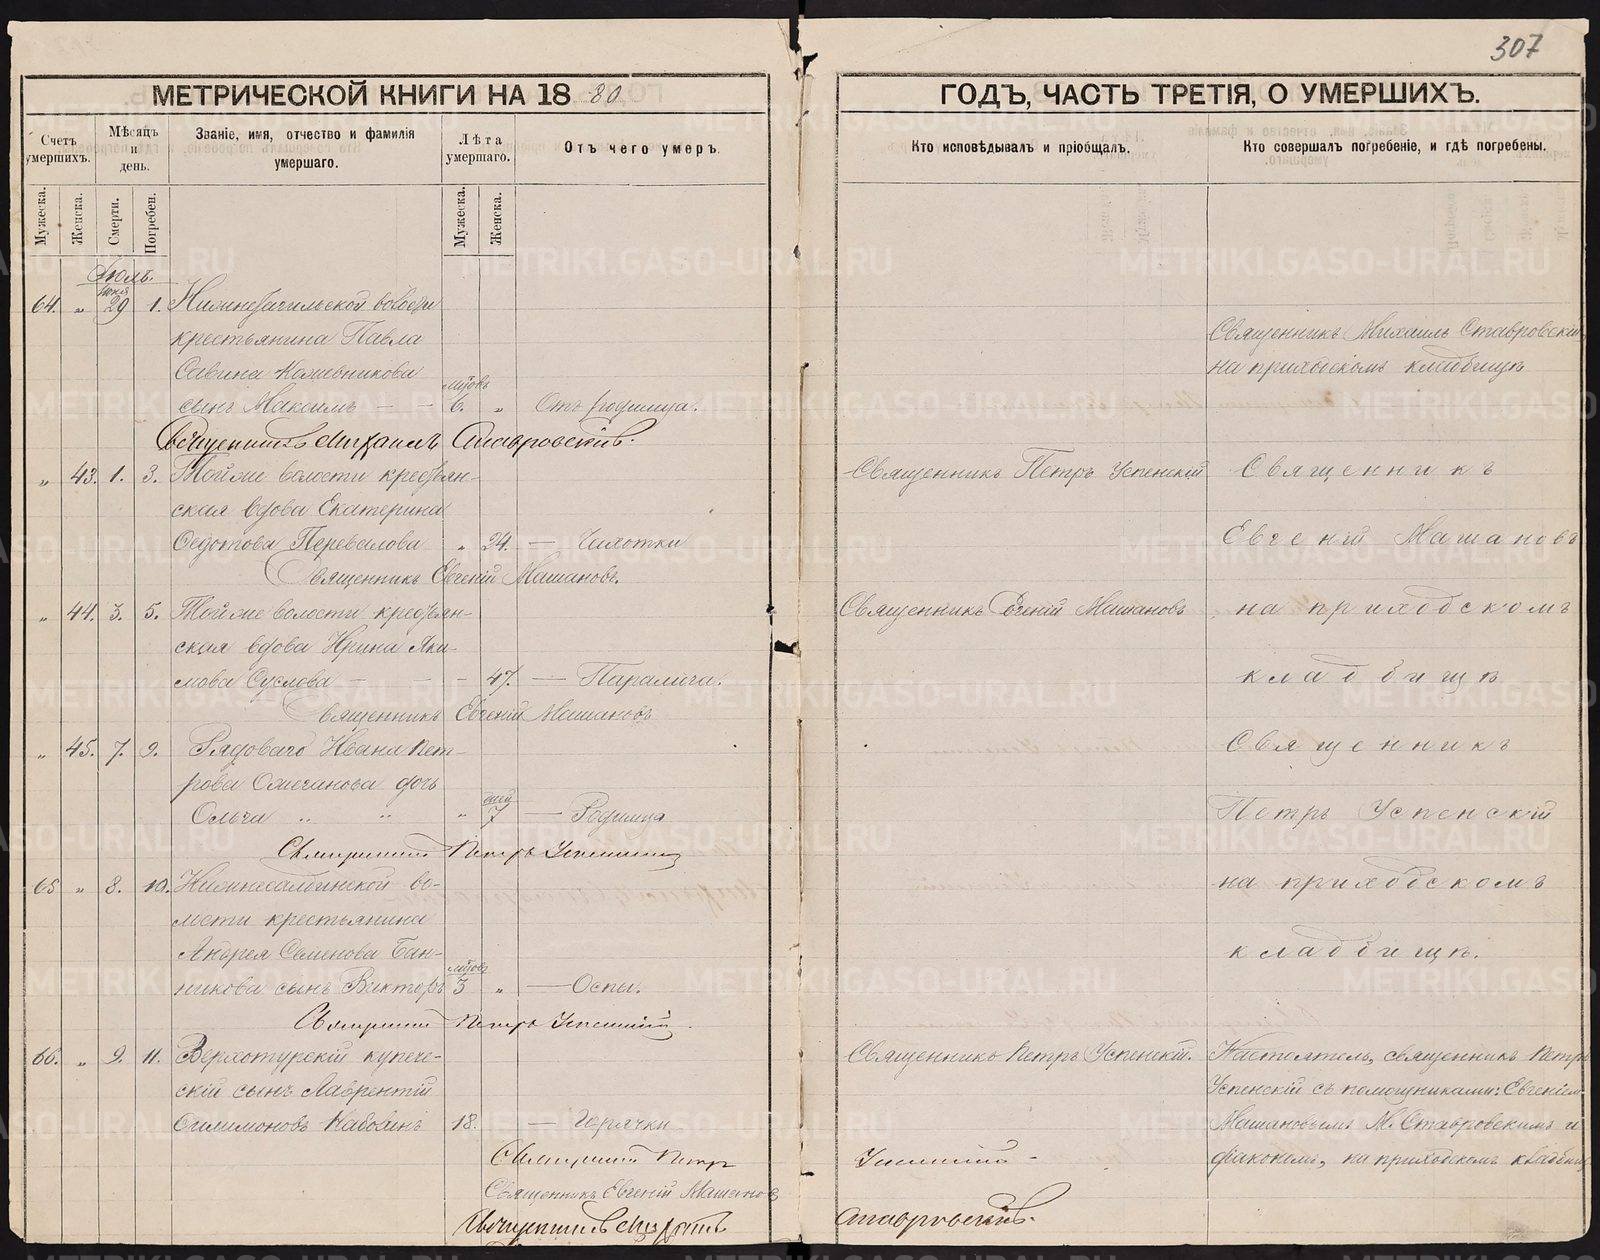 307
МЕТРИЧЕСКОЙ КНИГИ НА 18 80
ГОДЪ, ЧАСТЬ ТРЕТІЯ, О УМЕРШИХЪ.
Счетъ умершихъ.
Мѣсяцъ и день.
Званіе, имя, отчество и фамилія умершаго.
Лѣта умершаго.
Отъ чего умеръ.
Кто исповѣдывалъ и пріобщалъ.
Кто совершалъ погребеніе, и гдѣ погребены.
Мужеска. Женска. Смерти. Погребен. Мужеска. Женска.
Іюль.
іюня
64. „ 29 1. Нижнетагильской волости
крестьянина Павла
Савина Кожевникова
сынъ Максимъ — — 6. „ Отъ родимца.
Священникъ Михаилъ Ставровскій
на приходскомъ кладбищѣ
Священникъ Михаилъ Ставровскій.
„ 43. 1. 3. Тойже волости крестьян-
ская вдова Екатерина
Федотова Перевалова „ 24. — Чахотки
Священникъ Евгеній Машановъ.
Священникъ Петръ Успенскій
Священникъ
Евгеній Машановъ
„ 44. 3. 5. Тойже волости крестьян-
ская вдова Ирина Яки-
мова Суслова — — 47. — Паралича.
Священникъ Евгеній Машановъ
Священникъ Евгеній Машановъ
на приходскомъ
кладбищѣ
„ 45. 7. 9. Рядоваго Ивана Пет-
рова Ольга „ „ „ 7 — Родимца
Священникъ Петръ Успенскій
Священникъ
Петръ Успенскій
65 „ 8. 10. Нижнесалдинской во-
лости крестьянина
Андрея Семенова Бан-
никова сынъ Викторъ 3 „ — Оспы.
Священникъ Петръ Успенскій.
на приходскомъ
кладбищѣ.
66. „ 9. 11. Верхотурскій купече-
скій сынъ Лаврентій
18. — Горячки
Священникъ Петръ Успенскій.
Настоятель, священникъ Петръ
Успенскій съ помощниками: Евгеніем
Машановымъ М. Ставровскимъ и
діакономъ, на приходскомъ кладбищ
Священникъ Петръ Успенскій —
Священникъ Евгеній Машановъ
Священникъ Михаилъ Ставровскій.
METRIKI.GASO-URAL.RU